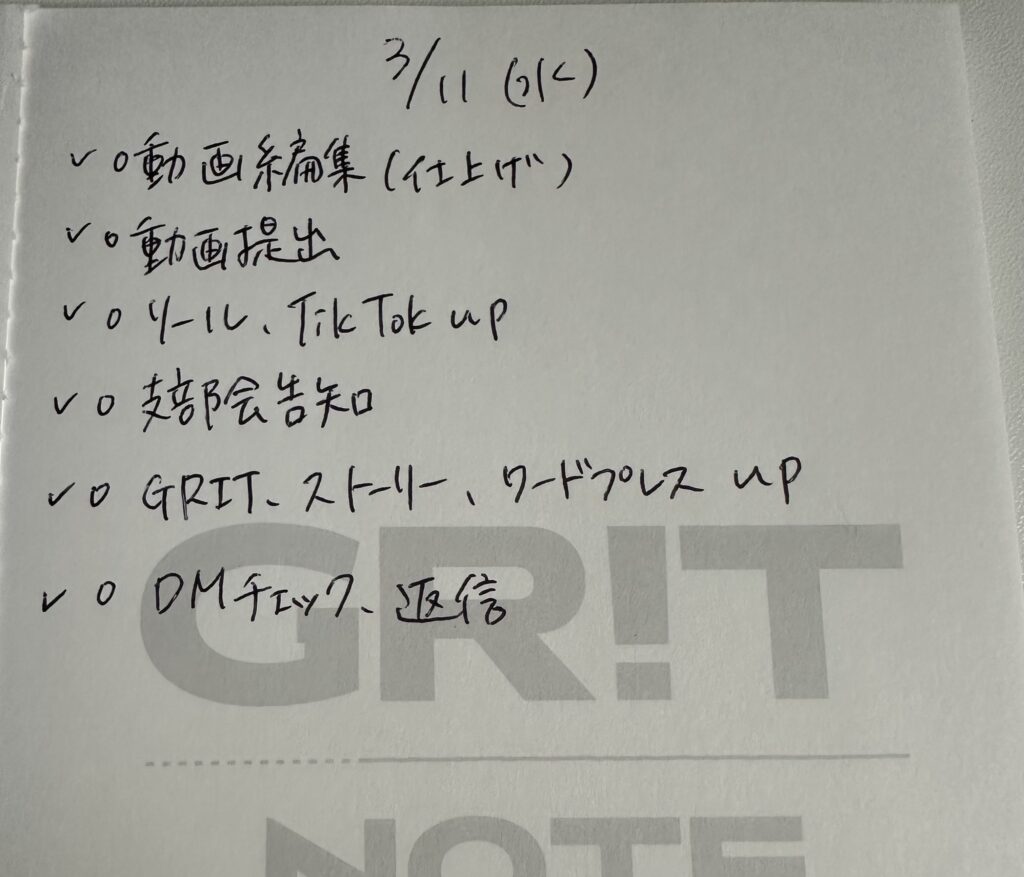 3/11 (水)
✓○動画編集(仕上げ)
✓○動画提出
✓○リール、TikTok up
✓○支部会告知
✓○GRIT、ストーリー、ワードプレス up
✓○DMチェック、返信
GR!T
NOTE